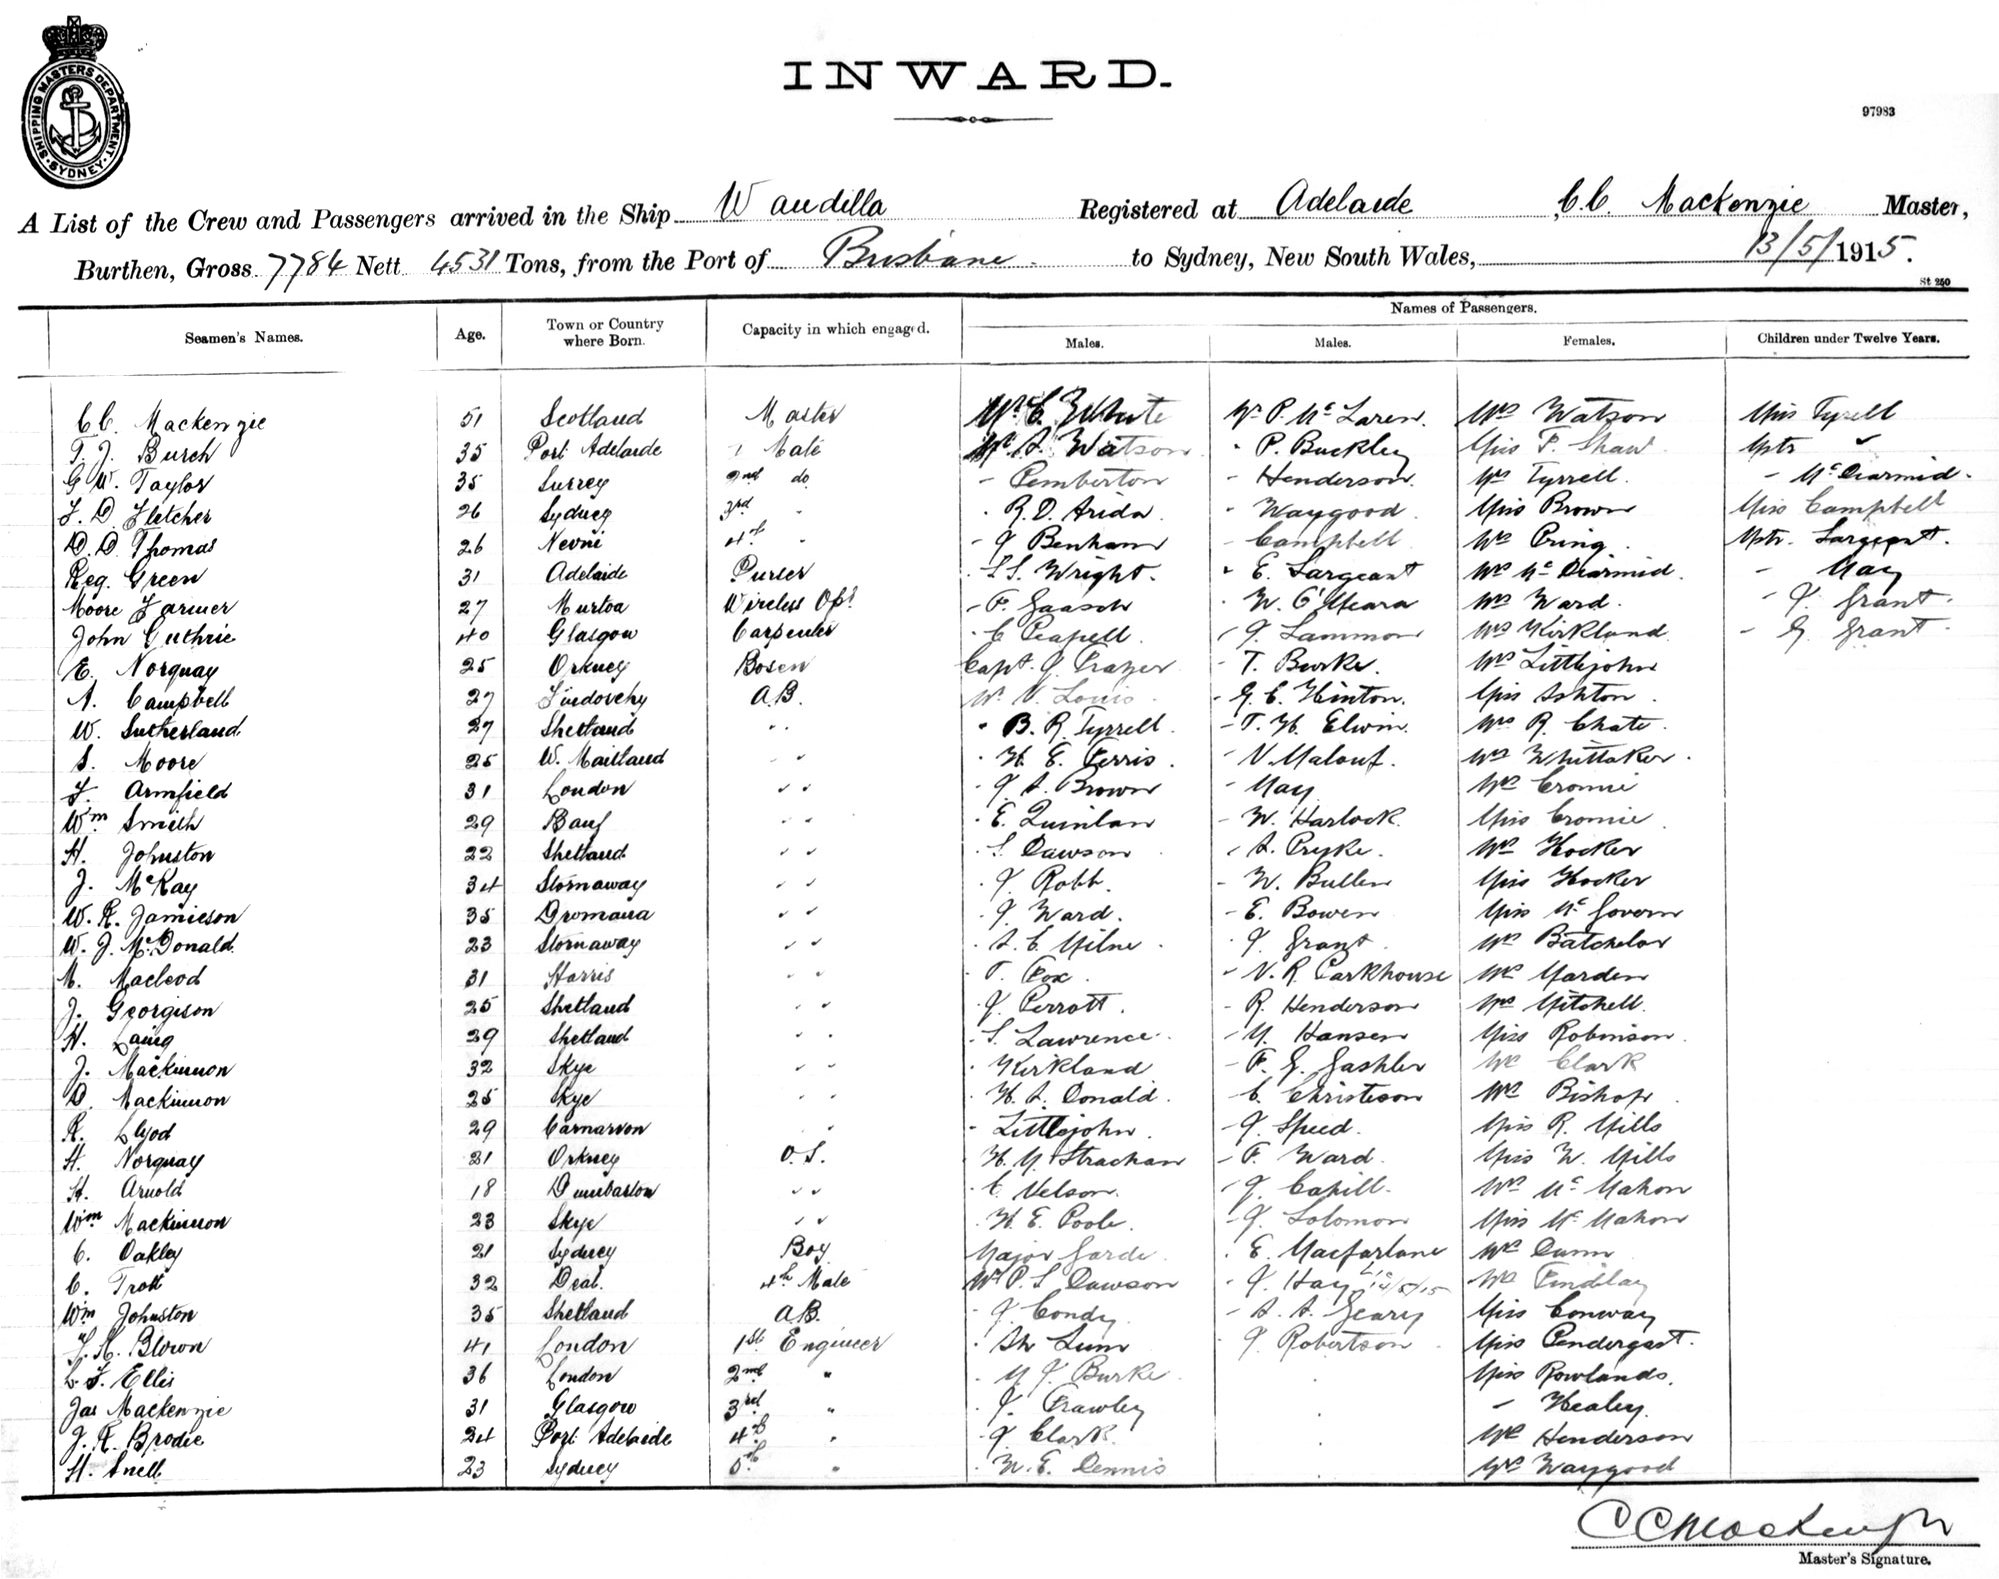 SHIPPING MASTERS DEPARTMENT. SYDNEY
INWARD.
97983
A List of the Crew and Passengers arrived in the Ship Wandilla Registered at Adelaide, C.C. Mackenzie Master,
Burthen, Gross 7784 Nett 4531 Tons, from the Port of Brisbane. to Sydney, New South Wales, 13/5/1915.
St 250
Names of Passengers.
Seamen's Names. Age. Town or Country where Born. Capacity in which engaged. Males. Males. Females. Children under Twelve Years.
C.C. Mackenzie 51 Scotland Master Mr C. White Mr P. McLaren. Mrs Watson Miss Tyrell
T. J. Burch 35 Port Adelaide 1 Mate Mr A. Watson - P. Buckley Miss F. Shaw Mstr
G W. Taylor 35 Surrey 2nd do - Pemberton - Henderson. Mrs Tyrrell. - McDiarmid.
F. D. Fletcher 26 Sydney 3rd " - R. D. Arida. - Waygood. Miss Brown Miss Campbell
D. D. Thomas 26 4th " - J Benham - Campbell Mrs Pring. Mstr. Sargeant.
Reg. Green 31 Adelaide Purser - S.S. Wright. - E. Sargeant Mrs McDiarmid. - May
Moore Farmer 27 Murtoa Wireless Opr - F. Gaasch - W. O'Meara Mrs Ward. - J. Grant.
John Guthrie 40 Glasgow Carpenter - C Peapell. - J. Lammon Mrs Kirkland - G. Grant.
E. Norquay 25 Orkney Bosen Capt. J. Frazer - T. Burke. Mrs Littlejohn
A. Campbell 27 A.B. Mr V. Louis - G. C. Hinton. Miss Ashton.
W. Sutherland 27 Shetland " " - B. R. Tyrrell. - T. H. Elwin. Mrs R. Chate.
S. Moore 25 W. Maitland " " - H. E. Ferris. - N. Malouf. Mrs Whittaker.
F. Armfield 31 London " " - J A. Brown - May Mrs Cromie
Wm Smith 29 Banf " " - E. Quinlan - W. Harlock. Miss Cromie
H. Johnston 22 Shetland " " - S. Dawson - A. Pryke. Mrs Hocker
J. McKay 34 Stornaway " " - J Robb. - W. Bullen Miss Hocker
W. R. Jamieson 35 Dromana " " - J Ward. - E. Bowen Miss McGovern
W. J. McDonald. 23 Stornaway " " - A. C. Milne - J Grant. Mrs Batchelor
M. Macleod 31 Harris " " - T. Fox - V. R. Parkhouse Mrs Marden
J. Georgison 25 Shetland " " - J Perrott. - R. Henderson Mrs Mitchell.
H. Laing 29 Shetland " " - S. Lawrence. - M. Hansen Miss Robinson
J. Mackinnon 32 Skye " " - Kirkland - F. G. Gashler Mrs Clark
D. Mackinnon 25 Skye " " - H. A. Donald. - C. Christeson Mrs Bishop
R. Llyod 29 Carnarvon " " - Littlejohn. - J Speed. Miss R. Mills
H. Norquay 21 Orkney O.S. - H. M Strachan - F. Ward. Miss W. Mills
H. Arnold 18 Dumbarton " " - C Nelson. - J. Cahill. Mrs McMahon
Wm Mackinnon 23 Skye " " - H. E. Poole. - J. Solomon Miss McMahon
C. Oakley 21 Sydney Boy Major Garde. - E. Macfarlane Mrs Dunn
C. Trott 32 Deal. 4th Mate Mr P. S Dawson - J. Hay Mrs Findlay
Wm Johnston 35 Shetland A.B. - J Condy - A. A. Geary Miss Conway
F. H. Blown 41 London 1st Engineer - Ah Lum - J Robertson Miss Pendergast.
L. F. Ellis 36 London 2nd " - M J Burke. Miss Rowlands.
Jas Mackenzie 31 Glasgow 3rd " - J. Frawley - Healey.
J. R. Brodie 24 Port Adelaide 4th " - J Clark. Mrs Henderson
H. Snell 23 Sydney 5th " - W. E. Dennis Mrs Waygood
C C Mackenzie
Master's Signature.